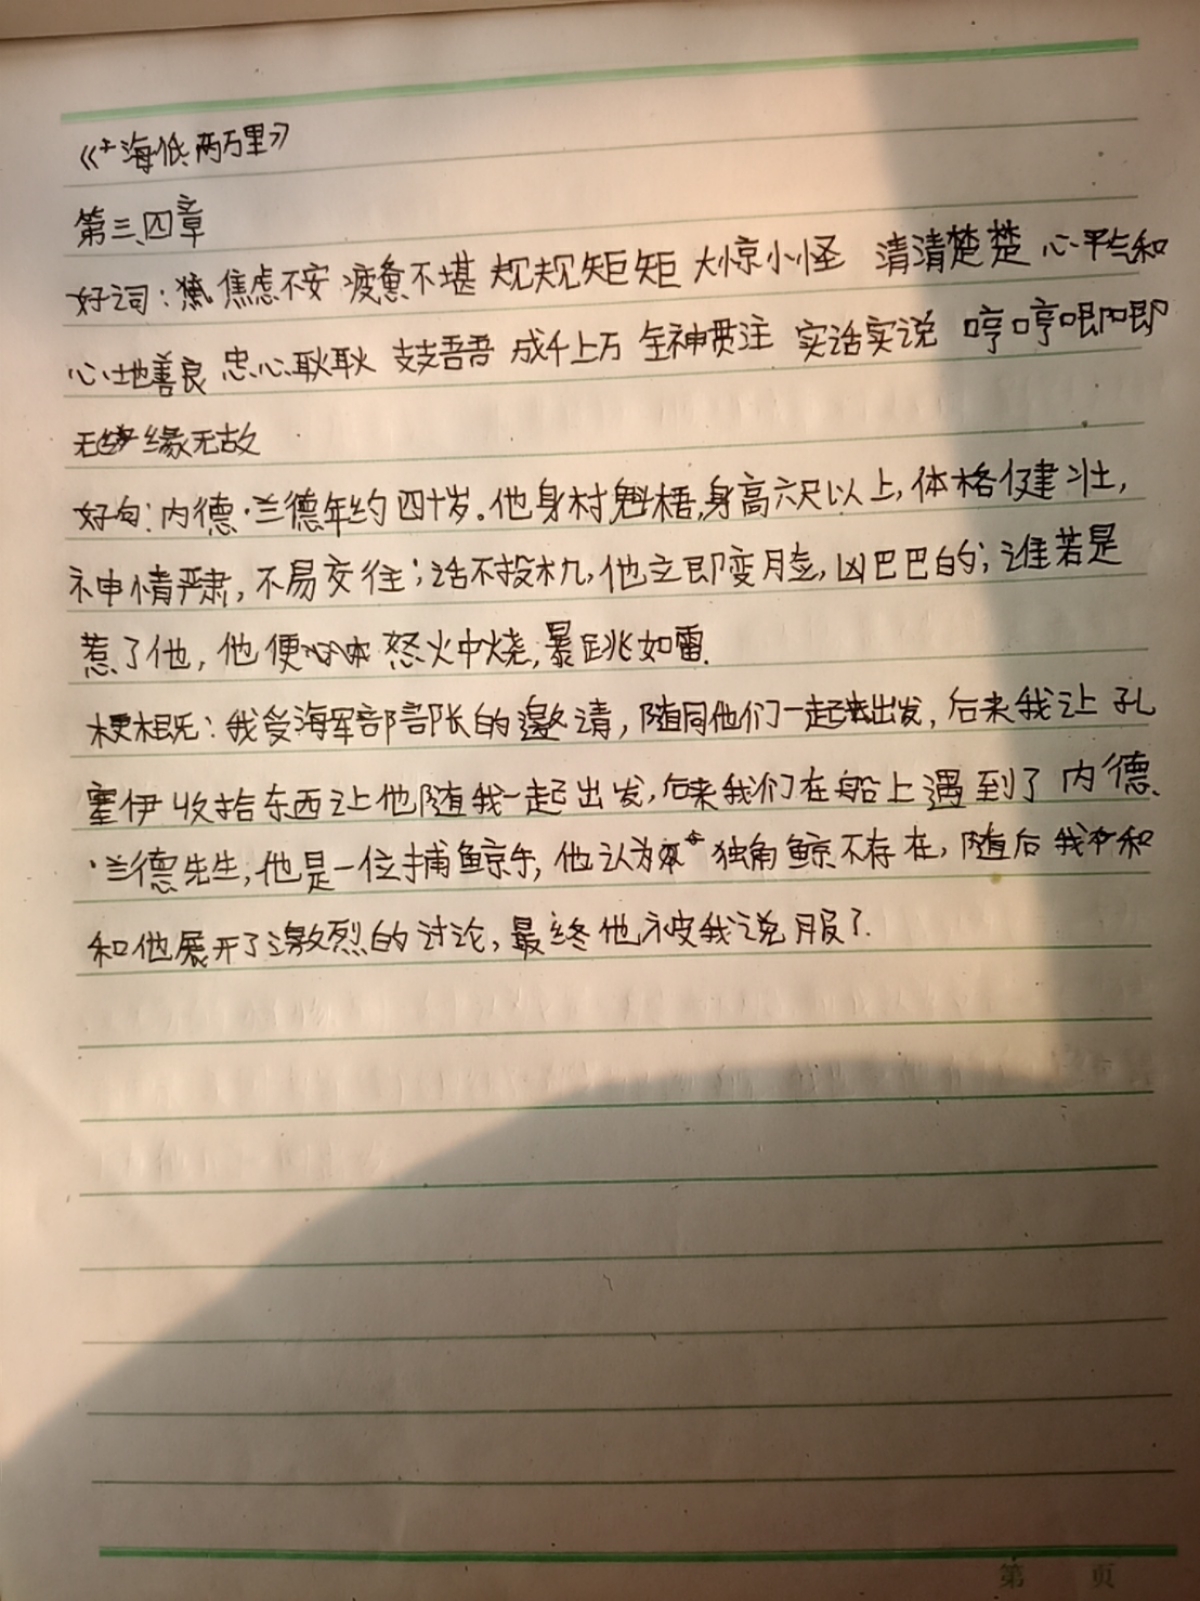 《海低两万里》
第三、四章
好词：焦虑不安 疲惫不堪 规规矩矩 大惊小怪 清清楚楚 心平气和
心地善良 忠心耿耿 支支吾吾 成千上万 全神贯注 实话实说 哼哼唧唧
无缘无故
好句：内德·兰德年约四十岁。他身材魁梧，身高六尺以上，体格健壮，
神情严肃，不易交往；话不投机，他立即变脸，凶巴巴的；谁若是
惹了他，他便怒火中烧，暴跳如雷.
梗概：我受海军部部长的邀请，随同他们一起出发，后来我让孔
塞伊收拾东西让他随我一起出发，后来我们在船上遇到了内德
·兰德先生，他是一位捕鲸手，他认为独角鲸不存在，随后我和
和他展开了激烈的讨论，最终他被我说服了.
第 页